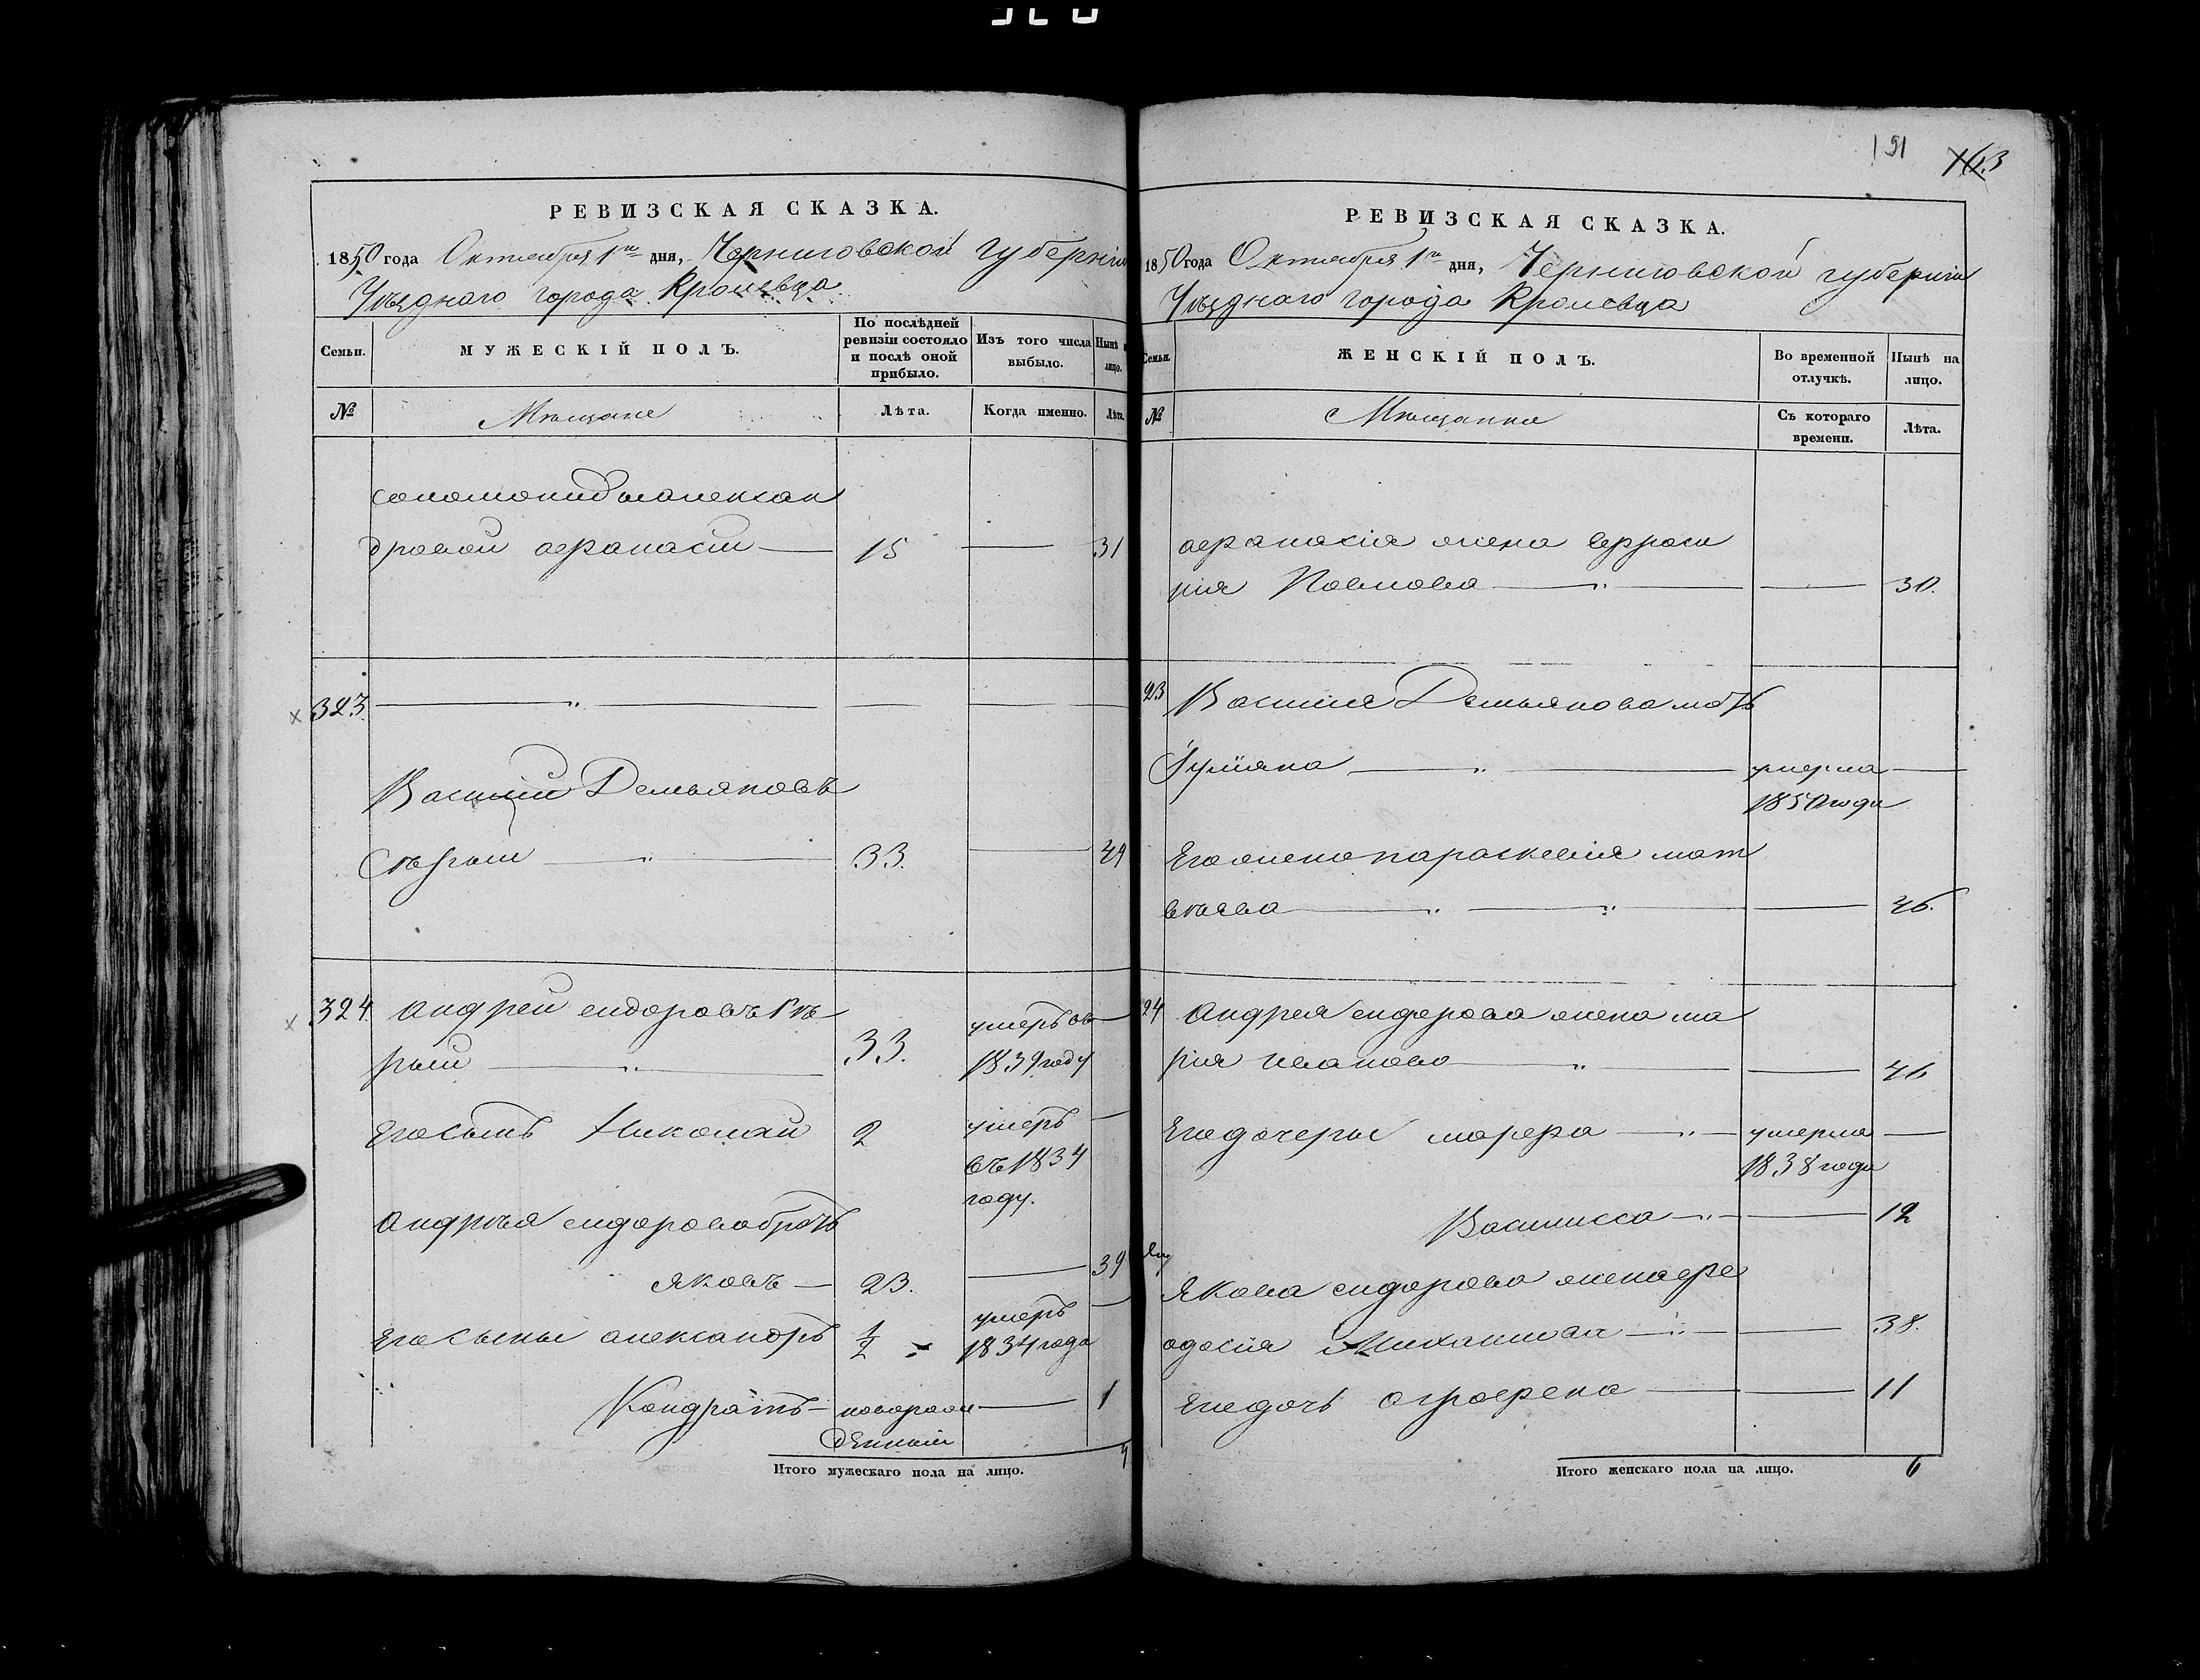 191 163
РЕВИЗСКАЯ СКАЗКА.
1850 года Октября 1го дня, Черниговской губерніи
Уѣзднаго города Кролевца
Семьи.
МУЖЕСКІЙ ПОЛЪ.
По послѣдней ревизіи состояло и послѣ оной прибыло.
Изъ того числа выбыло.
Нынѣ на лицо.
№
Мѣщане
Лѣта.
Когда именно.
Лѣта.
соломониды алексан
дровой афанасій — 15 — 31
323.
Василій Демьяновъ
Сѣрый — 33. — 49
324. Андрей сидоровъ Сѣ
рый — 33. умеръ въ 1839 году
Егосынъ Николай 2 умеръ въ 1834 году.
Андрѣя сидорова братъ
яковъ — 23. — 39
Егосыны александръ 1/2 умеръ 1834 года
Кондратъ — новорож
денный — 1
Итого мужескаго пола на лицо. 4
РЕВИЗСКАЯ СКАЗКА.
1850 года Октября 1го дня, Черниговской губерніи
Уѣзднаго города Кролевца
Семьи.
ЖЕНСКІЙ ПОЛЪ.
Во временной отлучкѣ.
Нынѣ на лицо.
№
Мѣщанки
Съ котораго времени.
Лѣта.
афанасія жена
Павлова — 30.
23 Василія Демьянова мать
Іуліяна — умерла
1850 года
Егожена параскевія мат
вѣева — 46.
24 Андрея сидорова жена ма
рія иванова — 46
Егодочеры марфа — умерла
1838 года
Василисса — 12
Якова сидорова женафе
одосія Михайлова — 38.
Егодочь аграфена — 11
Итого женскаго пола на лицо. 6